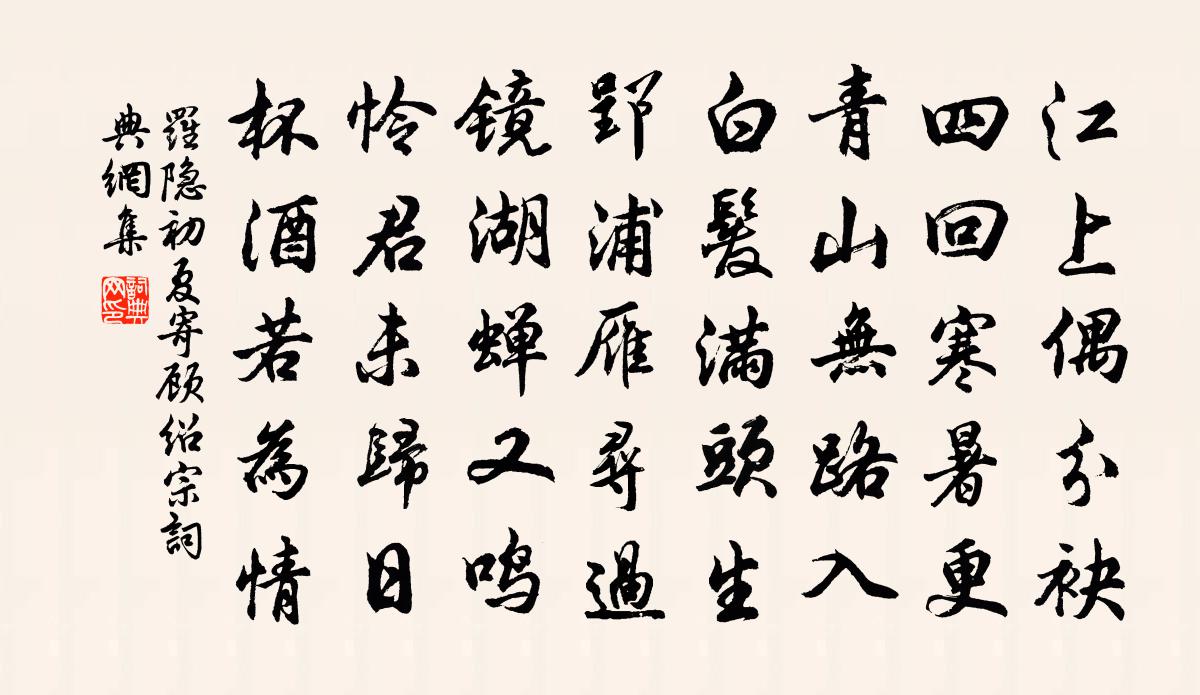 江上偶分袂
四回寒暑更
青山無路入
白髮滿頭生
郢浦雁尋過
镜湖蝉又鸣
怜君未歸日
杯酒若為情
羅隐初夏寄顾绍宗詞
典網集
詞典網印